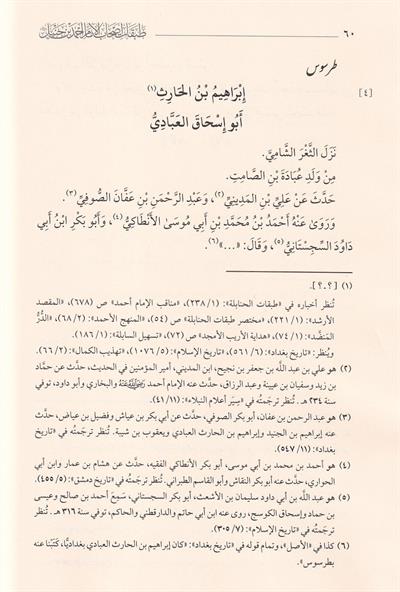 ٦٠
طبقات أصحاب الإمام أحمد بن حنبل
طرسوس
[٤]
إِبْرَاهِيمُ بْنُ الحَارِثِ(١)
أَبُو إِسْحَاقَ العَبَّادِيُّ
نَزَلَ الثَّغْرَ الشَّامِيَّ.
مِنْ وَلَدِ عُبَادَةَ بْنِ الصَّامِتِ.
حَدَّثَ عَنْ عَلِيِّ بْنِ المَدِينِيِّ(٢)، وَعَبْدِ الرَّحْمَنِ بْنِ عَفَّانَ الصُّوفِيِّ(٣).
وَرَوَىٰ عَنْهُ أَحْمَدُ بْنُ مُحَمَّدِ بْنِ أَبِي مُوسَىٰ الأَنْطَاكِيُّ(٤)، وَأَبُو بَكْرِ ابْنُ أَبِي
دَاوُدَ السِّجِسْتَانِيُّ(٥)، وَقَالَ: «...»(٦).
(١) [؟ ـ ؟].
تُنظر أخباره في «طبقات الحنابلة»: (١/ ٢٣٨)، «مناقب الإمام أحمد» ص (٦٧٨)، «المقصد
الأرشد»: (١/ ٢٢١)، «مختصر طبقات الحنابلة» ص (٥٤)، «المنهج الأحمد»: (٢/ ٦٨)، «الدُّرُّ
المنضَّد»: (١/ ٧٤)، «هداية الأريب الأمجد» ص (٧٢)، «تسهيل السابلة»: (١/ ١٨٦).
ويُنظر: «تاريخ بغداد»: (٦/ ٥٦١)، «تاريخ الإسلام»: (٥/ ١٠٧٦)، «تهذيب الكمال»: (٢/ ٦٦).
(٢) هو علي بن عبد الله بن جعفر بن نجيح، ابن المديني، أمير المؤمنين في الحديث، حدَّث عن حمَّاد
بن زيد وسفيان بن عيينة وعبد الرزاق، حدَّث عنه الإمام أحمد رضي الله عنه والبخاري وأبو داود، توفي
سنة ٢٣٤ هـ. تُنظر ترجمَتُه في «سِيَر أعلام النبلاء»: (١١/ ٤١).
(٣) هو عبد الرحمن بن عفان، أبو بكر الصوفي، حدَّث عن أبي بكر بن عياش وفضيل بن عياض، حدَّث
عنه إبراهيم بن الجنيد وإبراهيم بن الحارث العبادي ويعقوب بن شيبة. تُنظر ترجمَتُه في «تاريخ
بغداد»: (١١/ ٥٤٧).
(٤) هو أحمد بن محمد بن أبي موسى، أبو بكر الأنطاكي الفقيه، حدَّث عن هشام بن عمار وابن أبي
الحواري، حدَّث عنه أبو بكر النقاش وأبو القاسم الطبراني. تُنظر ترجمَتُه في «تاريخ دمشق»: (٥/ ٤٥٥).
(٥) هو عبد اللَّه بن أبي داود سليمان بن الأشعث، أبو بكر السجستاني، سَمِعَ أحمد بن صالح وعيسى
بن حماد وإسحاق الكوسج، روى عنه ابن أبي حاتم والدارقطني والحاكم، توفي سنة ٣١٦ هـ. تُنظر
ترجمَتُه في «تاريخ الإسلام»: (٧/ ٣٠٥).
(٦) كذا في «الأصل»، وتمام قوله في «تاريخ بغداد»: «كان إبراهيم بن الحارث العبادي بغداديًّا، كَتَبْنا عنه
بطرسوس».